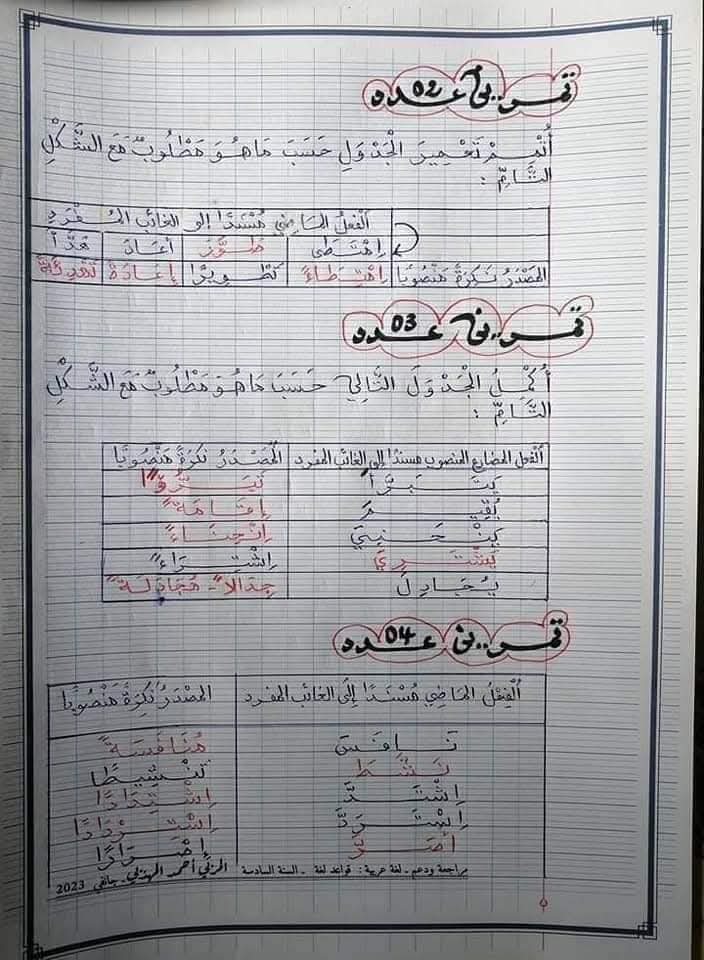 تمريـن عـدد 02
أُتْمِمْ تَعْمِيرَ الْجَدْوَلِ حَسَبَ مَا هُوَ مَطْلُوبٌ مَعَ الشَّكْلِ
التَّامِّ :
الْفِعْلُ المَاضِي مُسْنَدًا إلى الغائب المُـفـرَدِ
اِمْتَطَى طَوَّرَ أعَادَ هَدَّأَ
المَصْدَرُ نَكِرَةً مَنْصُوبًا اِمْتِطَاءً تَطْوِيرًا إعَادَةً تَهْدِئَةً
تمريـن عـدد 03
أُكْمِلُ الجَدْوَلَ التَّالِي حَسَبَ مَا هُوَ مَطْلُوبٌ مَعَ الشَّكْلِ
التَّامِّ :
الفعل المضارع المنصوب مسندًا إلى الغائب المفرد المَصْدَرُ نَكِرَةً مَنْصُوبًا
يَتَبَرَّأَ تَبَرُّؤًا
يُقِيمَ إِقَامَةً
يَنْحَنِيَ اِنْحِنَاءً
يَشْتَرِيَ اِشْتِرَاءً
يُجَادِلَ جِدَالاً - مُجَادَلَةً
تمريـن عـدد 04
الْفِعْلُ المَاضِي مُسْنَدًا إِلَى الغَائب المفرد المَصْدَرُ نَكِرَةً مَنْصُوبًا
نَافَسَ مُنَافَسَةً
نَشَّطَ تَنْشِيطًا
اِشْتَدَّ اِشْتِدَادًا
اِسْتَرَدَّ اِسْتِرْدَادًا
أَصَرَّ إِصْرَارًا
مراجعة ودعم - لغة عربية : قواعد لغة - السنة السادسة المربّي أحمد المهذبي - جانفي 2023